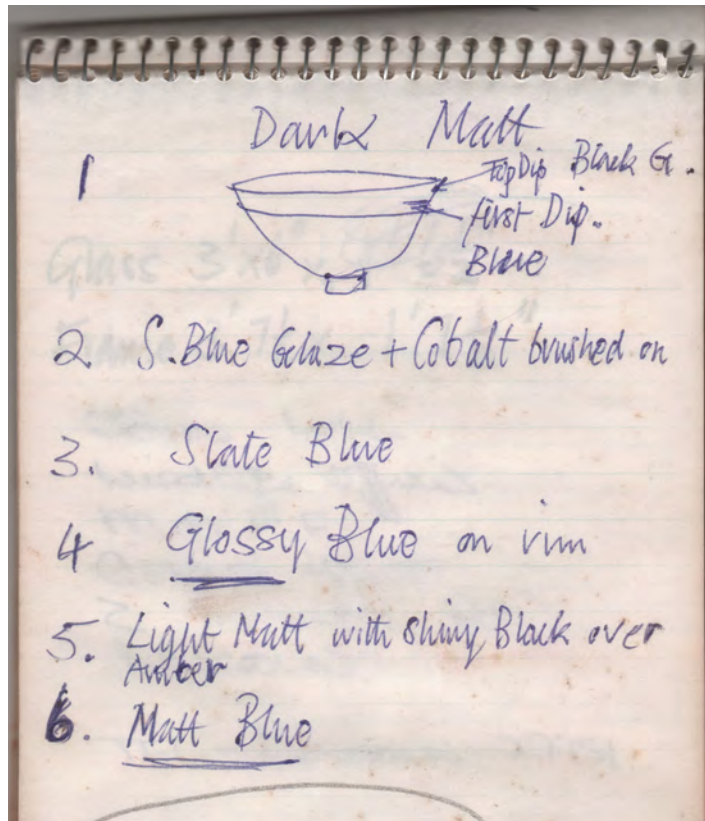 Dark Matt
1
Top Dip Black G.
first Dip.
Blue
2 S.Blue Glaze + Cobalt brushed on
3. Slate Blue
4 Glossy Blue on rim
5. Light Matt with shiny Black over
Amber
6. Matt Blue